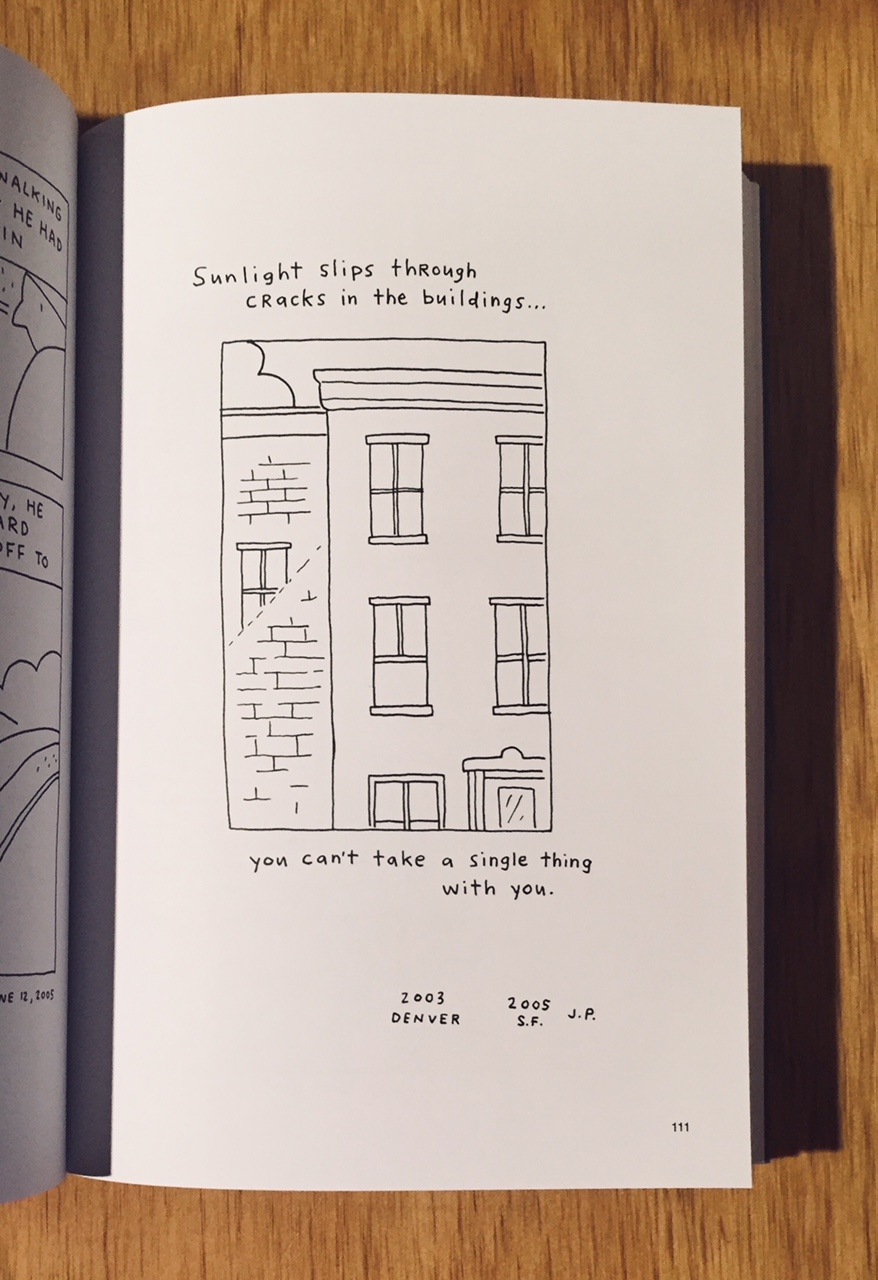 WALKING
HE HAD
IN
Y, HE
ARD
OFF TO
NE 12, 2005
Sunlight slips through
cracks in the buildings...
you can't take a single thing
with you.
2003
DENVER
2005
S.F.
J.P.
111